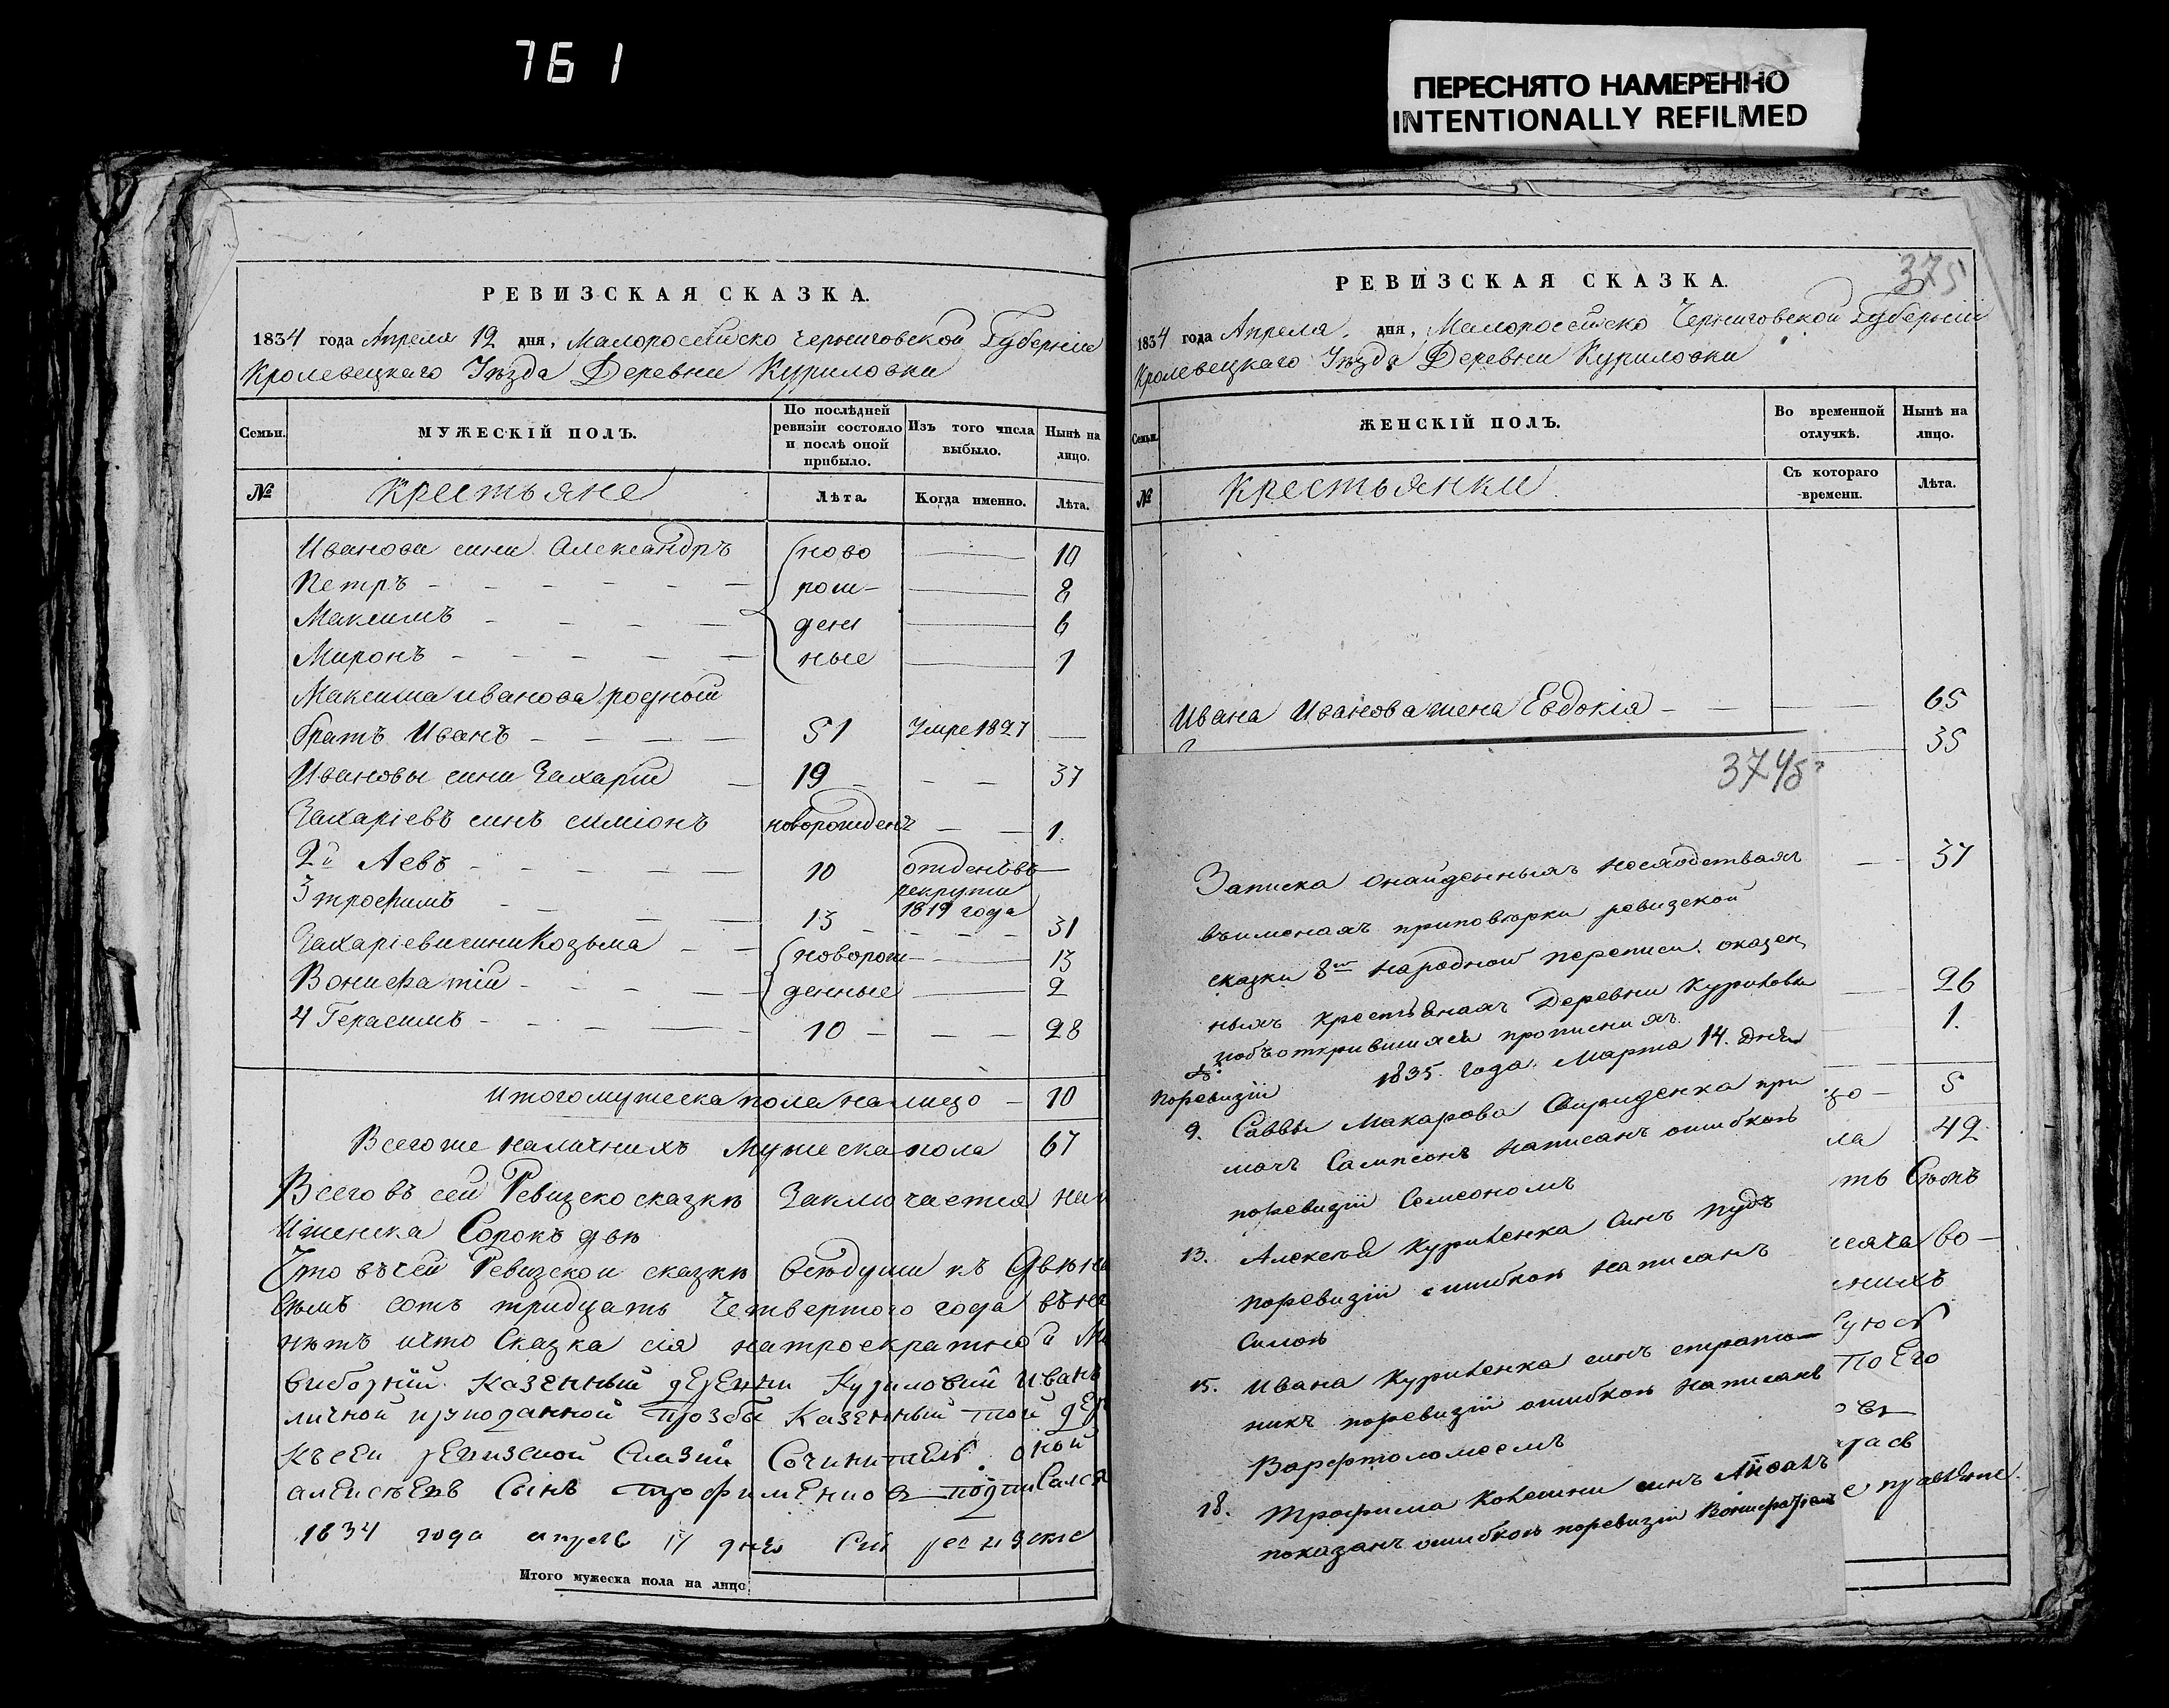 761
ПЕРЕСНЯТО НАМЕРЕННО
INTENTIONALLY REFILMED
РЕВИЗСКАЯ СКАЗКА.
1834 года Апреля 12 дня, Малоросейско Черниговской Губернии
Кролевецкаго Уезда Деревни Куриловки
Семьи.
МУЖЕСКІЙ ПОЛЪ.
По послѣдней ревизіи состояло и послѣ оной прибыло.
Изъ того числа выбыло.
Нынѣ на лицо.
№
Крестьяне
Лѣта.
Когда именно.
Лѣта.
Иванова сини Александръ (ново — 10
Петръ — рош- — 8
Максимъ — ден — 6
Миронъ — ные — 1
Максима иванова родной
братъ Иванъ — 51 Умре 1827 —
Ивановы сини Захарій — 19 — — 37
Захаріевъ синъ симіонъ новорожденъ — 1.
2й Левъ — 10 отденъвъ —
рекрути
3 трофимъ — 13 1819 года 31
Захаріеви сини Козьма — (новорош — 13
Вонифатій — денные — 2
4 Герасимъ — 10 — — 28
Итого мужеска пола налицо — 10
Всего же наличнихъ Мужеска пола 67
Всего въ сей Ревизско сказкѣ Заключается
Женска Сорокъ двѣ
Что въ сей Ревизской сказкѣ
сотъ тридцать Четвертого года
нѣтъ ичто Сказка сія натроекратной
виборній Казенный деревни Куриловки иванъ
личной прозбы Казенный той дер
Къ сей ревизской Сказки Сочинитель. оной
алексеевъ Синъ трофименков подписался
1834 года апреля 17 дня
Итого мужеска пола на лицо
375
РЕВИЗСКАЯ СКАЗКА.
1834 года Апреля, дня, Малоросейско Черниговской Губерніи
Кролевецкаго Уезда Деревни Куриловки
Семьи.
ЖЕНСКІЙ ПОЛЪ.
Во временной отлучкѣ.
Нынѣ на лицо.
№
Крестьянки
Съ котораго времени.
Лѣта.
Ивана Иванова жена Евдокія — — 65
35
37
26
1.
5
42
3745
Записка онайденныхъ несходствахъ
въименахъ приповѣрки ревизской
сказки 8й народной переписи. оказен
ныхъ крестьянахъ Деревни Куриловки
открившихся прописнихъ
1835 года. Марта 14. Дня
Поревизіи
9. Саввы Макарова Свириденка при
мачъ Сампсонъ написанъ ошибкою
поревизіи Семеономъ
13. Алексѣя Куриленка Синъ Пудъ
поревизіи ошибкою написанъ
Силою
15. Ивана Куриленка синъ страто-
никъ поревизіи ошибкою написанъ
Варфтоломеемъ
18. Трофима синъ
показанъ ошибкою поревизіи Вонифатіемъ